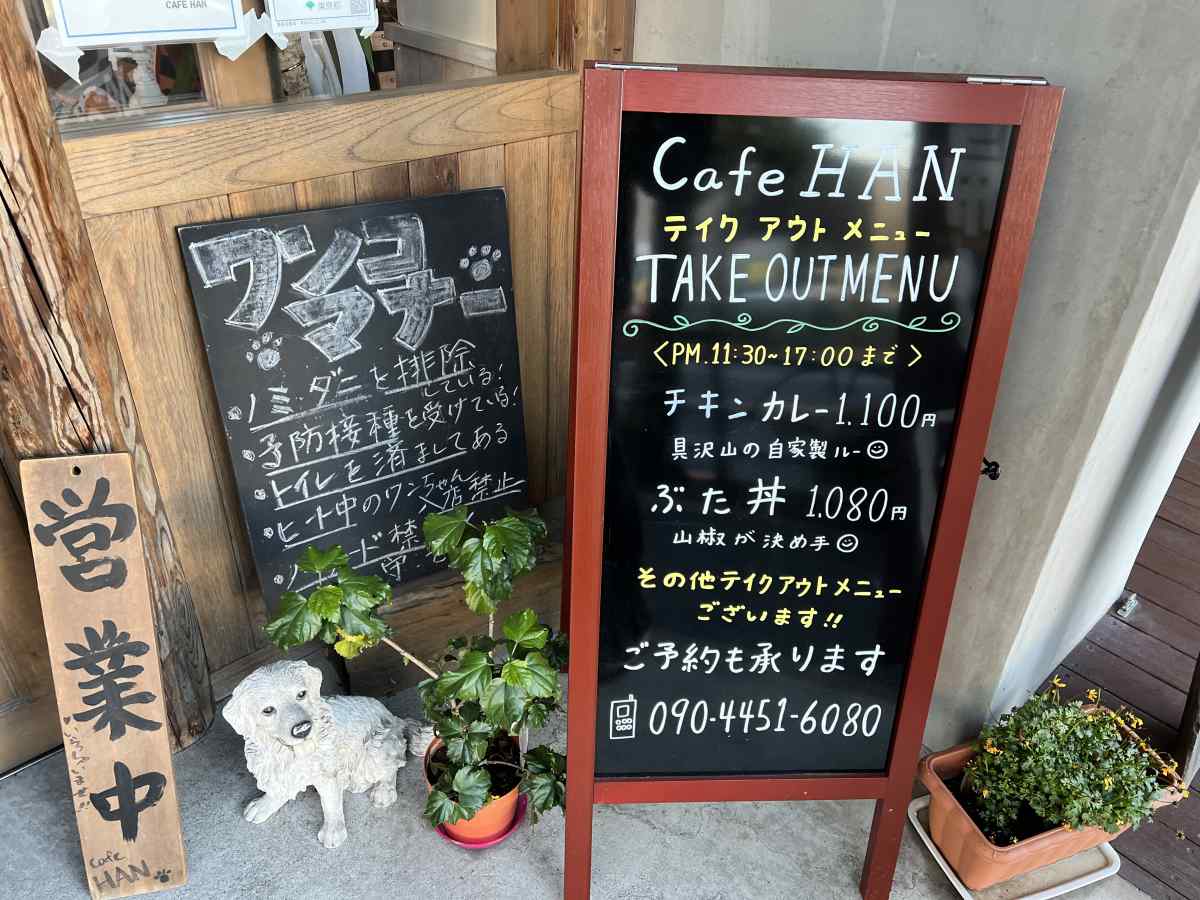 CAFE HAN
東京都
ワンコ
マナー
ノミ・ダニを排除
している!
予防接種を受けている!
トイレを済ましてある
ヒート中のワンちゃん
入店禁止
営業中
いらっしゃいませ!!
cafe
HAN
Cafe HAN
テイク アウト メニュー
TAKE OUT MENU
〈PM.11:30~17:00まで〉
チキンカレー1.100円
具沢山の自家製ルー☺
ぶた丼 1.080円
山椒が決め手☺
その他テイクアウトメニュー
ございます!!
ご予約も承ります
090-4451-6080